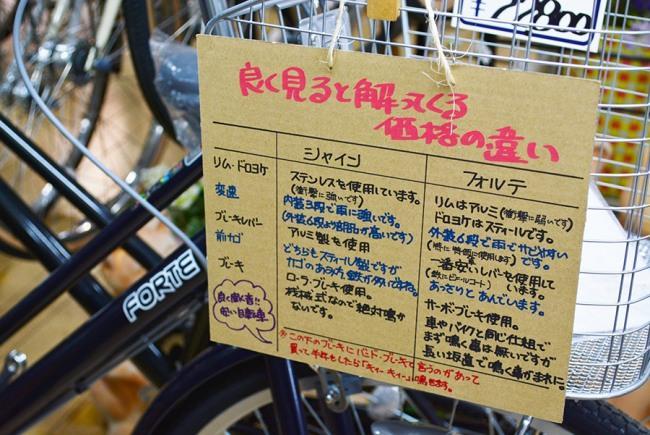 ¥22800
良く見ると解ってくる
価格の違い
シャイン
フォルテ
リム・ドロヨケ
ステンレスを使用しています。
(衝撃に強いです)
リムはアルミ(衝撃に弱いです)
ドロヨケはスティールです。
変速
内装3段で雨に強いです。
(外装6段より部品が高いです)
外装6段で雨でサビやすい
です。
ブレーキレバー
アルミ製を使用
一番安いレバーを使用して
います。
前カゴ
どちらもスティール製ですが
カゴのあみ方、鉄が太いですね。
あっさりとあんでいます。
ブレーキ
ローラーブレーキ使用。
桟橋式なので絶対鳴か
ないです。
サーボブレーキ使用。
車やバイクと同じ仕組で
まず鳴く事は無いですが
長い坂道で鳴く事がまれに。
良く聞く音!!
安い自転車
※この下のブレーキにバンド・ブレーキて言うのがあって
買って半年もしたら「キィーキィー」鳴きます。
FORTE